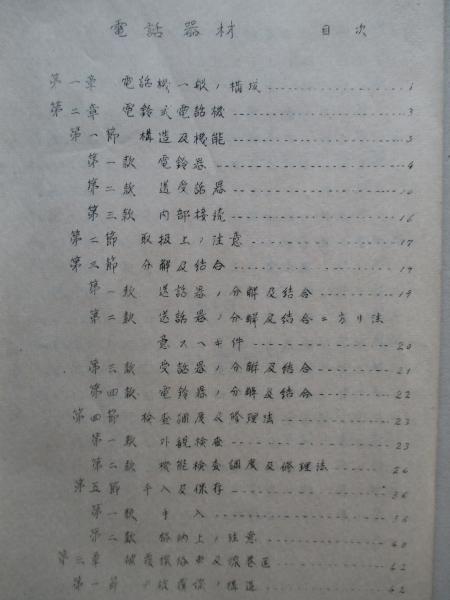 電話器材 目次
第一章 電話機一般ノ構成 1
第二章 電鈴式電話機 3
第一節 構造及機能 3
第一款 電鈴器 4
第二款 送受話器 10
第三款 内部接続 16
第二節 取扱上ノ注意 17
第三節 分解及結合 19
第一款 送話器ノ分解及結合 19
第二款 送話器ノ分解及結合ニ方リ注
意スヘキ件 20
第三款 受話器ノ分解及結合 21
第四款 電鈴器ノ分解及結合 22
第四節 検査調度及修理法 23
第一款 外観検査 23
第二款 機能検査調度及修理法 26
第五節 手入及保存 36
第一款 手入 36
第二款 格納上ノ注意 40
第三章 被覆線 及 42
第一節 被覆線ノ構造 42